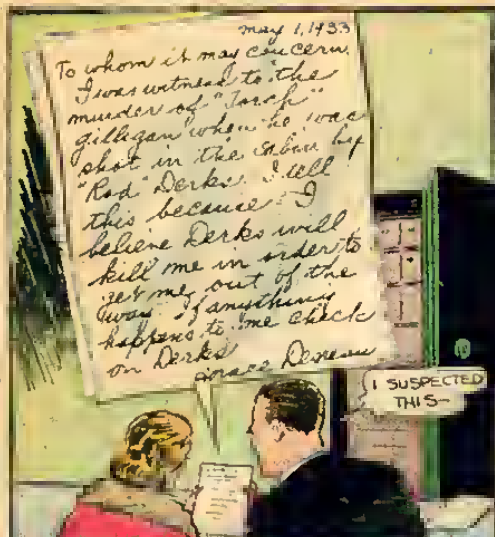 may 1, 1933
To whom it may concern
I was witness to the
murder of "Torch"
gilligan when he was
shot in the cabin by
"Rod" Derks. I tell
this because I
believe Derks will
kill me in order to
get me out of the
way. If anything
happens to me check
on Derks
Grace Deneau
I SUSPECTED
THIS—